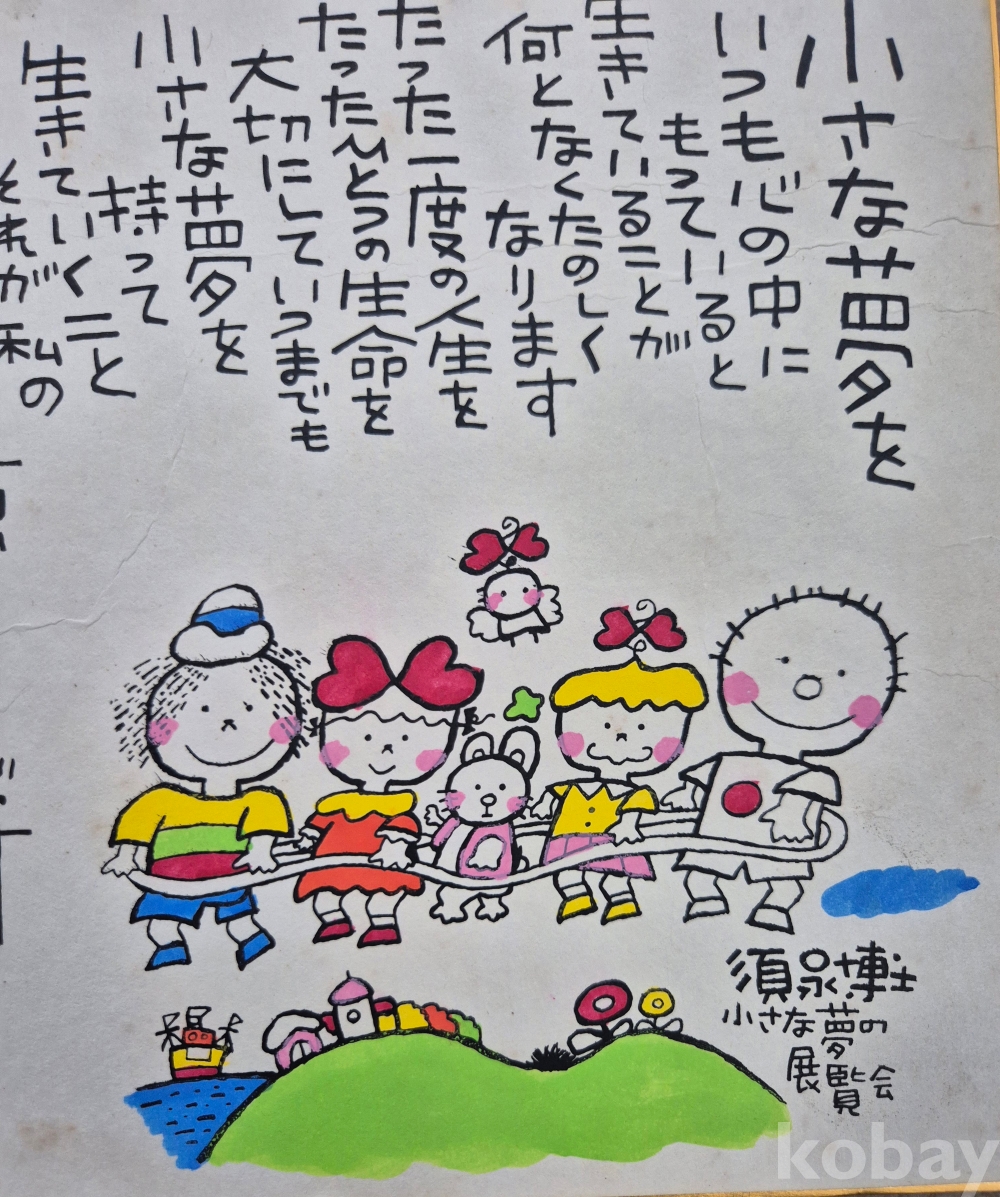 小さな夢を
いつも心の中に
もっていると
生きていることが
何となくたのしく
なります
たった一度の人生を
たったひとつの生命を
大切にしていつまでも
小さな夢を
持って
生きていくこと
それが私の
須永博士
小さな夢の
展覧会
kobay